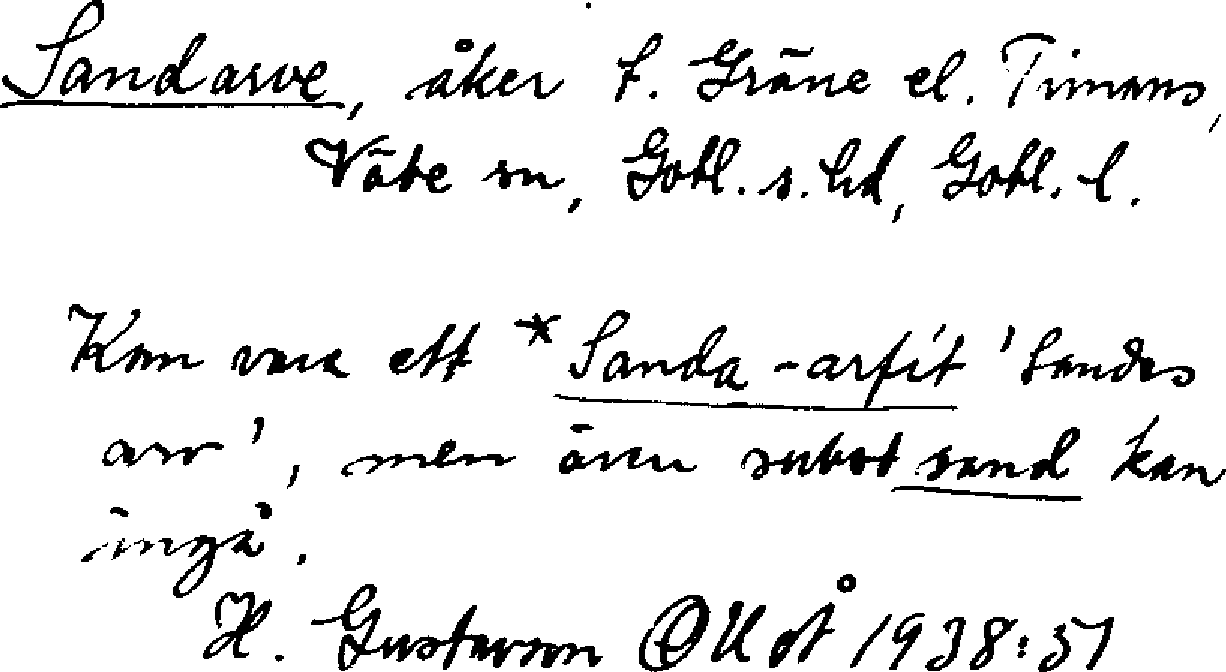 Sandarve, åker t. Gräne el. Timans,
Väte sn, Gotl. s. hd, Gotl. l.
Kan vara ett *Sanda-arfit 'Sandas
arv', men även subst sand kan
ingå.
H. Gustavson OUÅ 1938:51